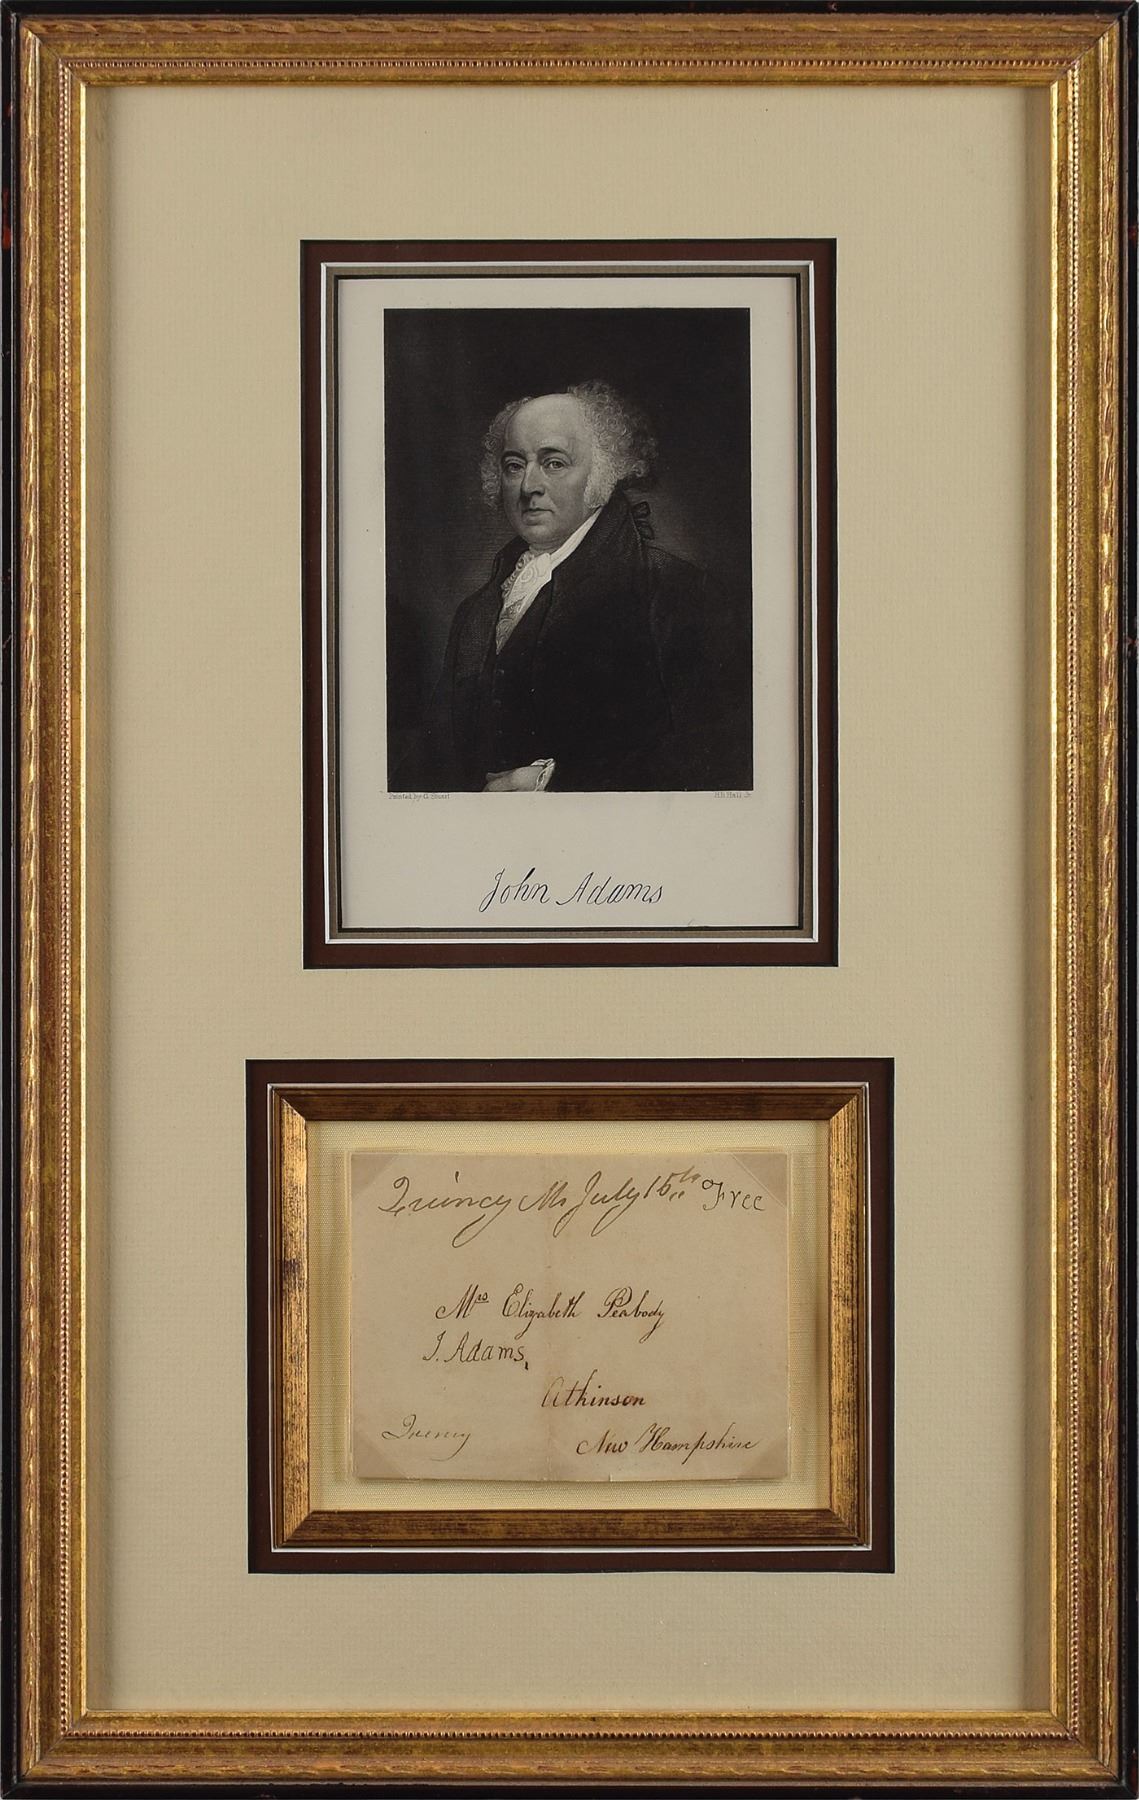 Painted by G. Stuart
H.B. Hall Jr.
John Adams
Quincy Ms July 15th Free
Mrs Elizabeth Peabody
J. Adams,
Atkinson
Quincy
New Hampshire